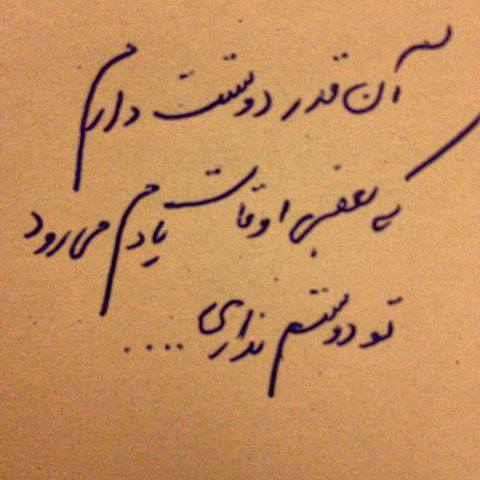 آن قدر دوستت دارم
که بعضی اوقات یادم می رود
تو دوستم نداری....